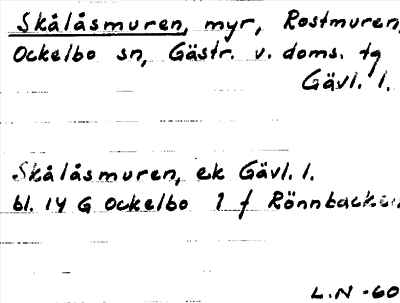 Skålåsmuren, myr, Rostmuren,
Ockelbo sn, Gästr. v. doms. tg
Gävl. l.
Skålåsmuren, ek Gävl. l.
bl. 14 G Ockelbo 1 f Rönnbacken
L.N -60